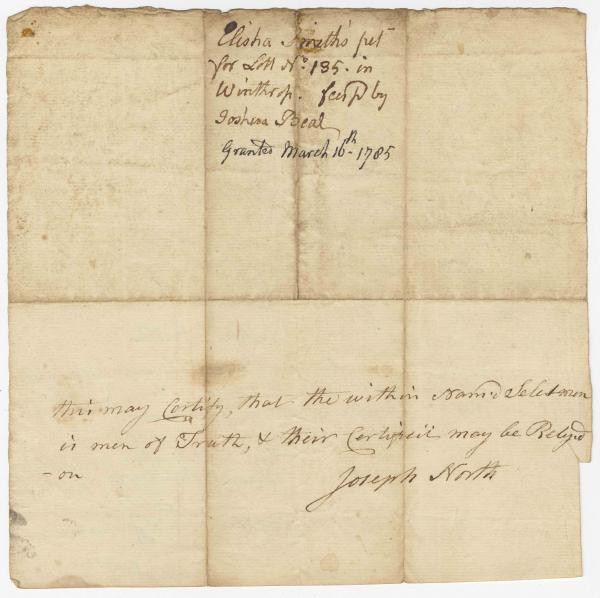 Elisha Smith's pet
for Lott No. 135. in
Winthrop. by
Joshua Beal
Granted March 16th. 1785
this may Certify, that the within Nam'd Selectmen
is men of Truth, & their Certificit may be Rely'd
-on
Joseph North